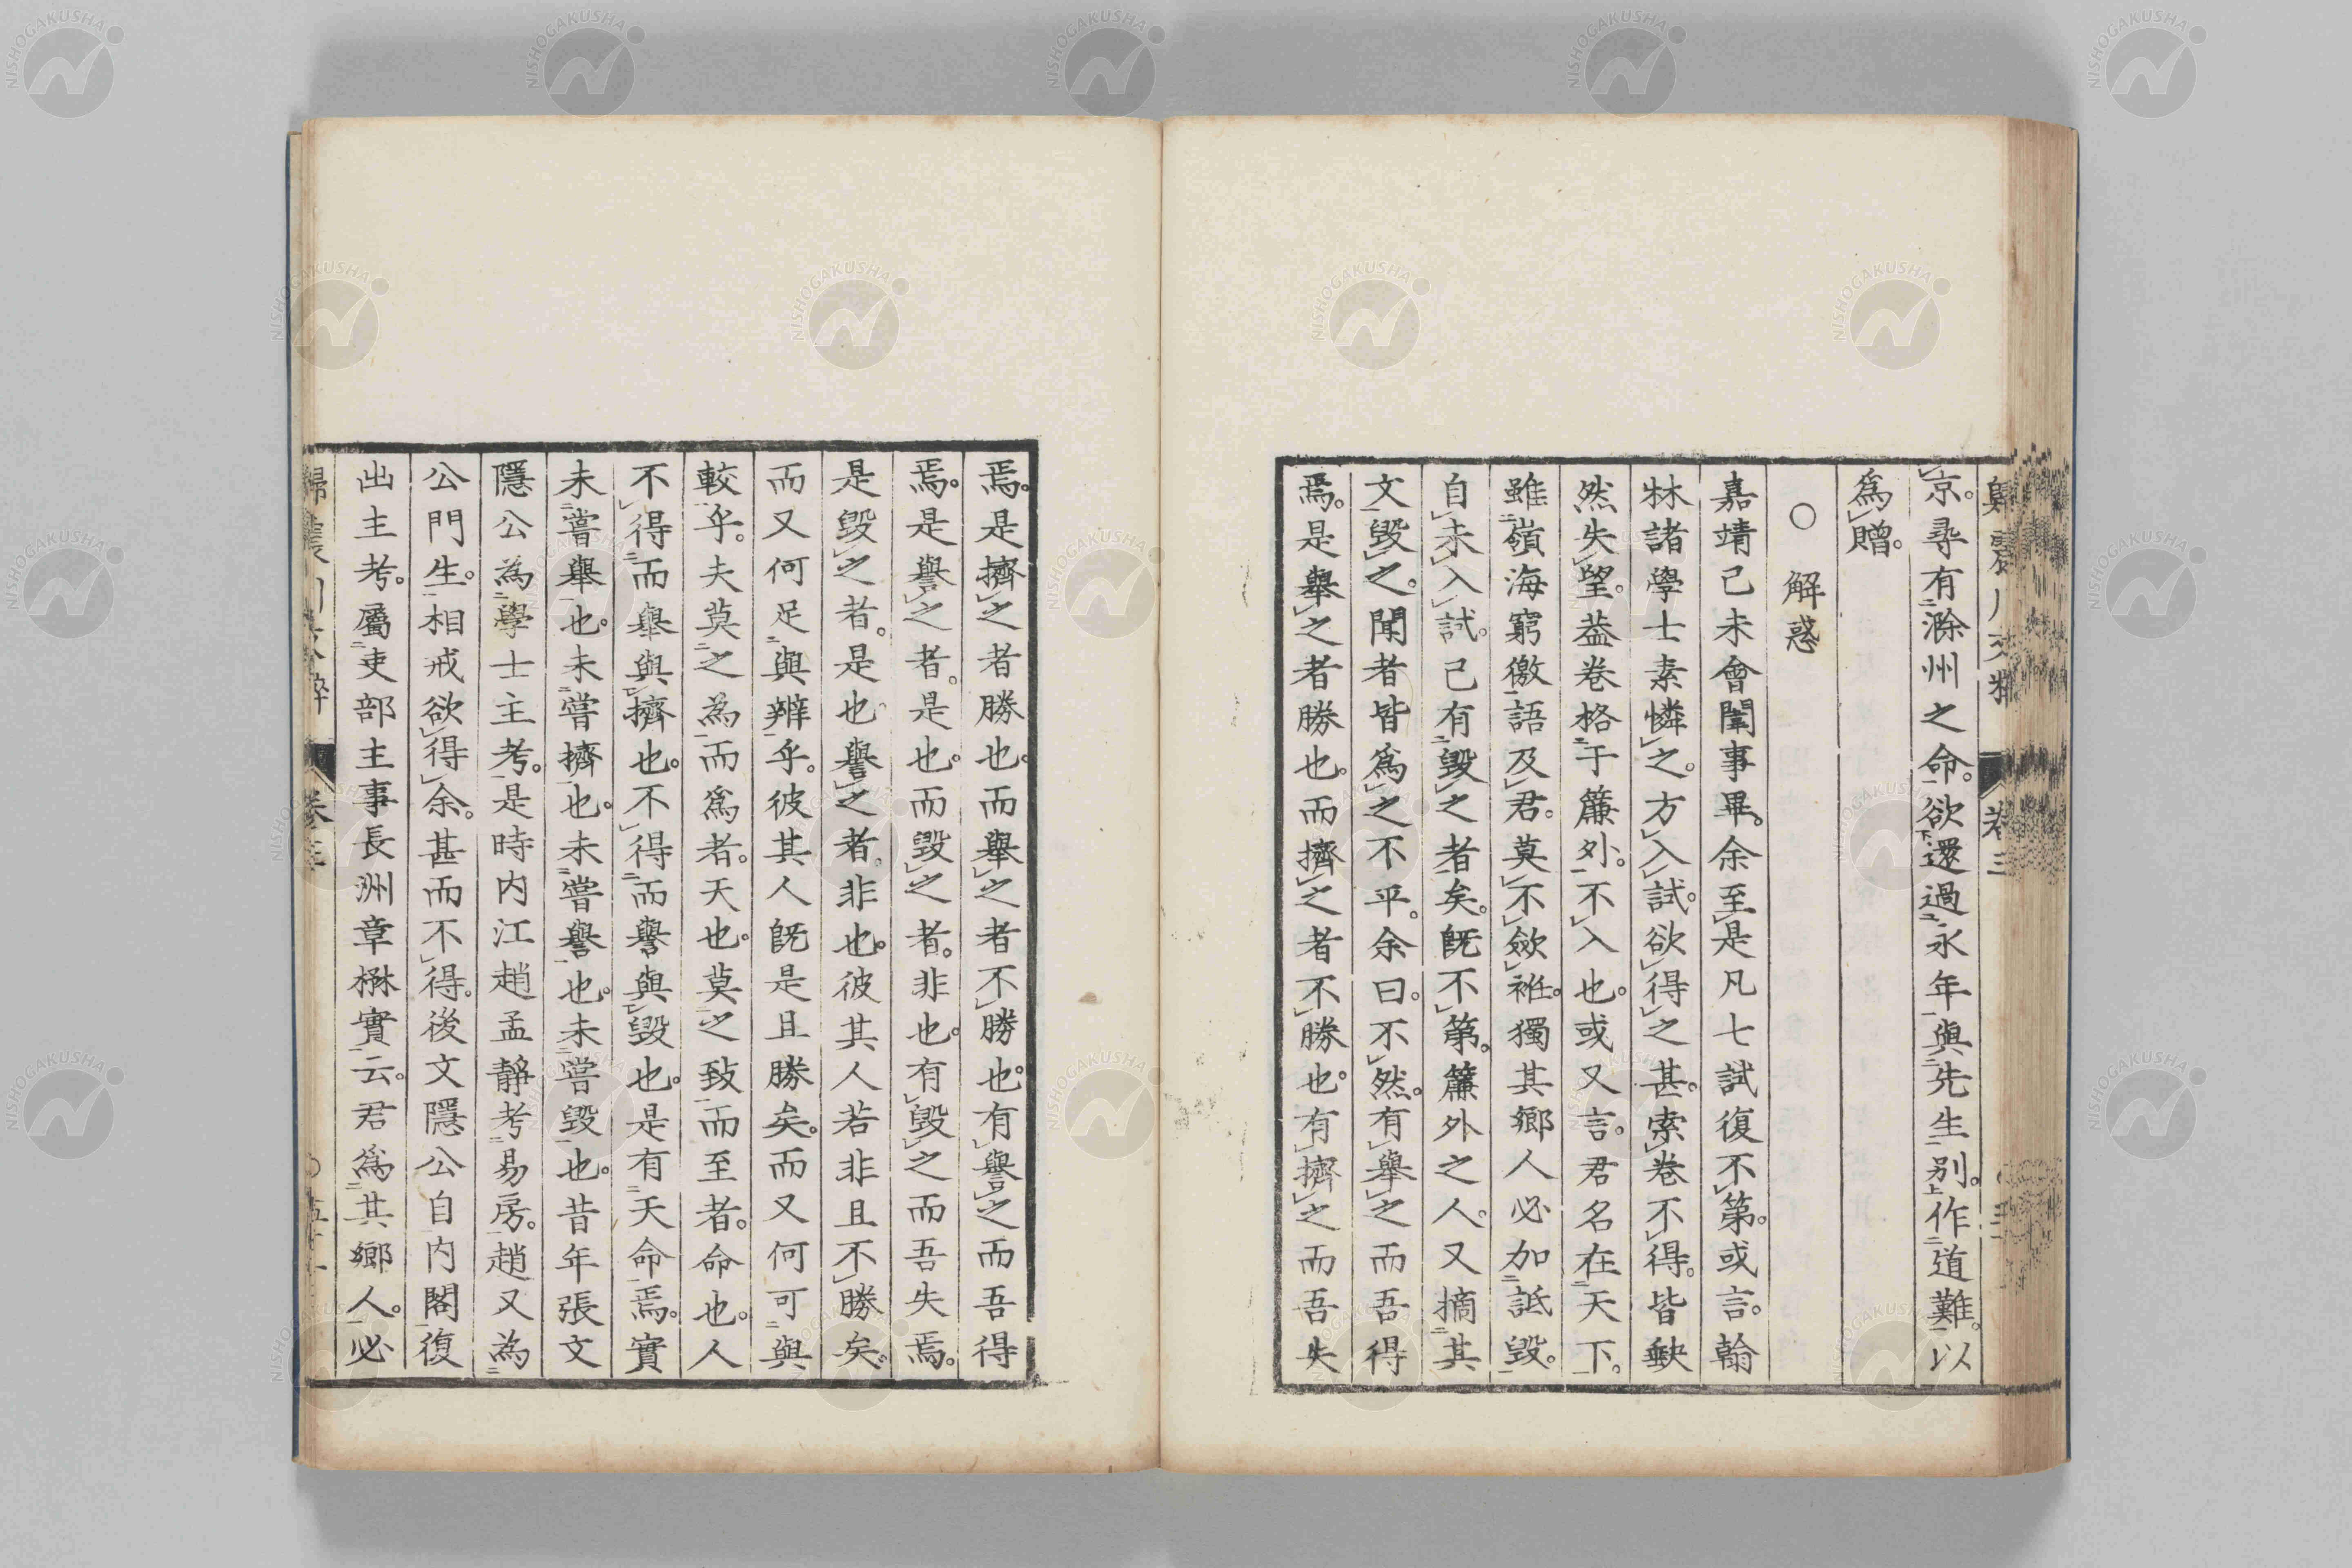 京。尋有滁州之命。欲還過永年與先生別。作道難。以
爲贈。
○ 解惑
嘉靖己未會闈事畢。余至是凡七試復不第。或言。翰
林諸學士素憐之。方入試。欲得之甚。索卷不得。皆缺
然失望。蓋卷格于簾外。不入也。或又言。君名在天下。
雖嶺海窮徼。語及君。莫不斂衽。獨其鄉人必加詆毀。
自未入試。已有毀之者矣。既不第。簾外之人。又摘其
文毀之。聞者皆爲之不平。余曰。不然。有舉之而吾得
焉。是舉之者勝也。而擠之者不勝也。有擠之而吾失
焉。是擠之者勝也。而舉之者不勝也。有譽之而吾得
焉。是譽之者。是也。而毀之者。非也。有毀之而吾失焉。
是毀之者。是也。譽之者。非也。彼其人若非且不勝矣。
而又何足與辨乎。彼其人既是且勝矣。而又何可與
較乎。夫莫之為而爲者。天也。莫之致而至者。命也。人
不得而舉與擠也。不得而譽與毀也。是有天命焉。實
未嘗舉也。未嘗擠也。未嘗譽也。未嘗毀也。昔年張文
隱公為學士主考。是時内江趙孟靜考易房。趙又為
公門生。相戒欲得余。甚而不得。後文隱公自内閣復
出主考。屬吏部主事長洲章楙實云。君爲其鄉人。必
卷三
NISHOGAKUSHA